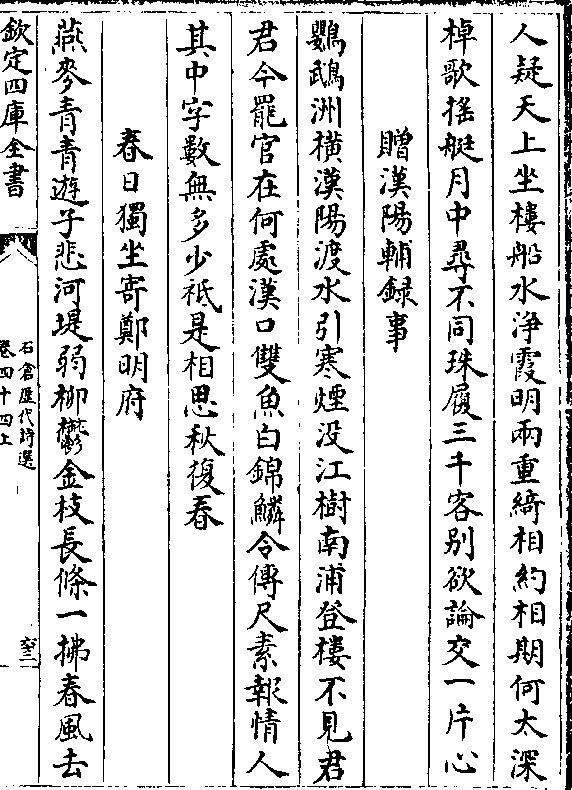 人疑天上坐樓船水淨霞明兩重綺相約相期何太深
棹歌搖艇月中尋不同珠履三千客别欲論交一片心
贈漢陽輔録事
鸚鵡洲横漢陽渡水引寒煙没江樹南浦登樓不見君
君今罷官在何處漢口雙魚白錦鱗令傳尺素報情人
其中字數無多少祗是相思秋復春
春日獨坐寄鄭明府
燕麥青青遊子悲河堤弱柳鬱金枝長條一拂春風去
欽定四庫全書
石倉歴代詩選
卷四十四上